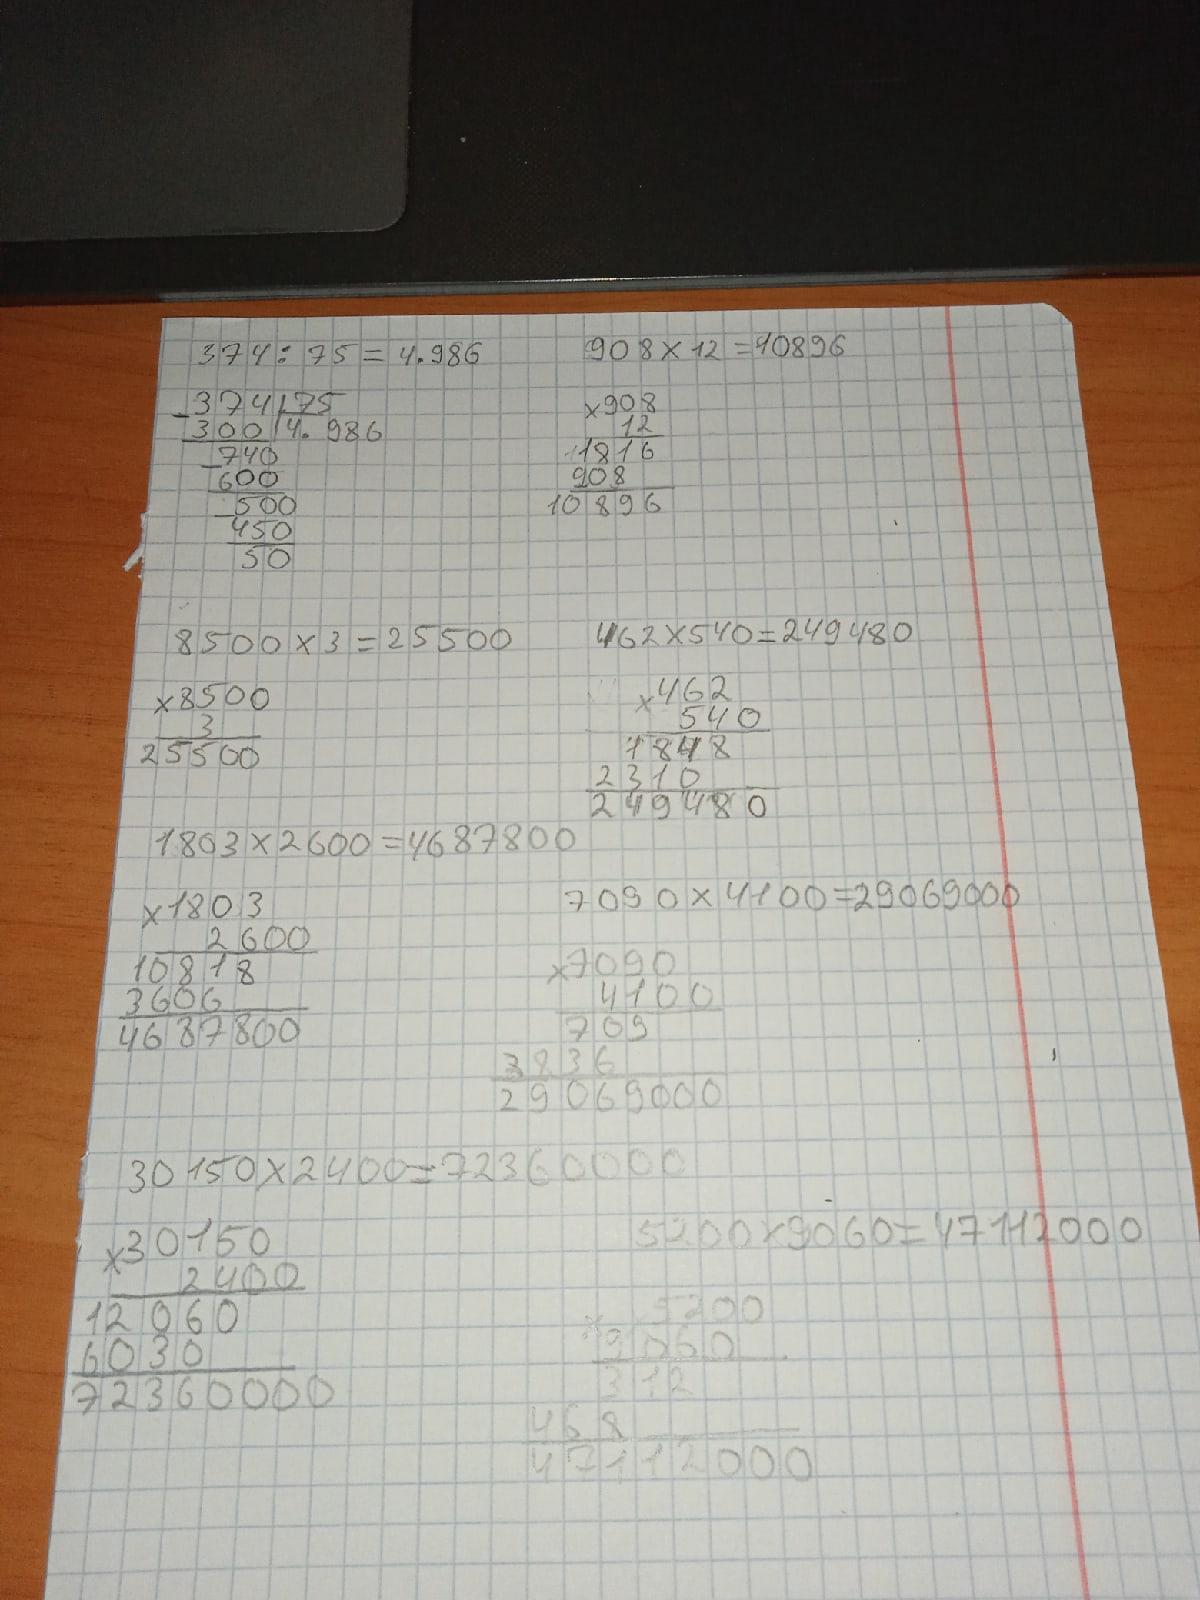 374:75=4.986
-374|75
300|4.986
-740
600
-500
450
50
908×12=10896
×908
12
1816
908
10896
8500×3=25500
×8500
3
25500
462×540=249480
×462
540
1848
2310
249480
1803×2600=4687800
×1803
2600
10818
3606
4687800
7090×4100=29069000
×7090
4100
709
3836
29069000
30150×2400=72360000
×30150
2400
12060
6030
72360000
5200×9060=47112000
×5200
9060
312
468
47112000